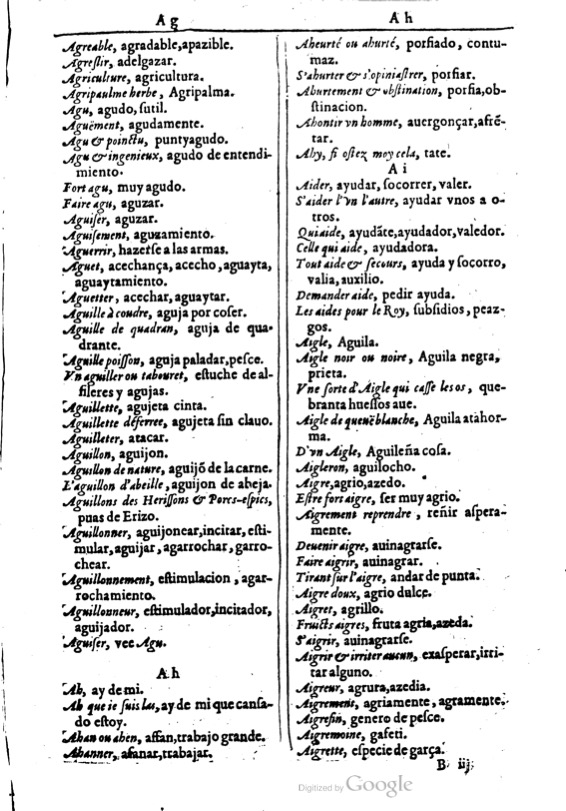 Ag
Agreable, agradable,apazible.
Agreſlir, adelgazar.
Agriculture, agricultura.
Agripaulme herbe, Agripalma.
Agu, agudo, ſutil.
Aguëment, agudamente.
Agu & poinctu, puntyagudo.
Agu & ingenieux, agudo de entendi-
miento.
Fort agu, muy agudo.
Faire agu, aguzar.
Aguiſer, aguzar.
Aguiſement, aguzamiento.
Aguerrir, hazerſe a las armas.
Aguet, acechança, acecho, aguayta,
aguaytamiento.
Aguetter, acechar, aguaytar.
Aguille à coudre, aguja por coſer.
Aguille de quadran, aguja de qua-
drante.
Aguille poiſſon, aguja paladar,peſce.
Vn aguiller ou tabouret, eſtuche de al-
fileres y agujas.
Aguillette, agujeta cinta.
Aguillette déferree, agujeta ſin clauo.
Aguilleter, atacar.
Aguillon, aguijon.
Aguillon de nature, aguijõ de la carne.
L'aguillon d'abeille, aguijon de abeja.
Aguillons des Heriſſons & Porcs-eſpics,
puas de Erizo.
Aguillonner, aguijonear,incitar, eſti-
mular,aguijar, agarrochar, garro-
chear.
Aguillonnement, eſtimulacion, agar-
rochamiento.
Aguillonneur, eſtimulador,incitador,
aguijador.
Aguiſer, vee Agu.
Ah
Ah, ay de mi.
Ah que ie ſuis las, ay de mi que canſa-
do eſtoy.
Ahan ou ahen, affan,trabajo grande.
Ahanner, afanar,trabajar.
Ah
Aheurté ou ahurté, porfiado, contu-
maz.
S'ahurter & s'opiniaſtrer, porfiar.
Ahurtement & obſtination, porfia,ob-
ſtinacion.
Ahontir vn homme, auergonçar,afrẽ-
tar.
Ahy, fi oſtez moy cela, tate.
Ai
Aider, ayudar, ſocorrer, valer.
S'aider l'vn l'autre, ayudar vnos a o-
tros.
Qui aide, ayudãte,ayudador,valedor.
Celle qui aide, ayudadora.
Tout aide & ſecours, ayuda y ſocorro,
valia, auxilio.
Demander aide, pedir ayuda.
Les aides pour le Roy, ſubſidios, peaz-
gos.
Aigle, Aguila.
Aigle noir ou noire, Aguila negra,
prieta.
Vne ſorte d'Aigle qui caſſe les os, que-
branta hueſſos aue.
Aigle de queuë blanche, Aguila atahor-
ma.
D'vn Aigle, Aguileña coſa.
Aigleron, aguilocho.
Aigre,agrio,azedo.
Eſtre fort aigre, ſer muy agrio.
Aigrement reprendre, reñir aſpera-
mente.
Deuenir aigre, auinagrarſe.
Faire aigrir, auinagrar.
Tirant ſur l'aigre, andar de punta.
Aigre doux, agrio dulce.
Aigret, agrillo.
Fruicts aigres, fruta agria,azeda.
S'aigrir, auinagrarſe.
Aigrir & irriter aucun, exaſperar,irri-
tar alguno.
Aigreur, agrura,azedia.
Aigrement, agriamente, agramente.
Aigrefin, genero de peſce.
Aigremoine, gafeti.
Aigrette, eſpecie de garça.
B iij
Digitized by Google